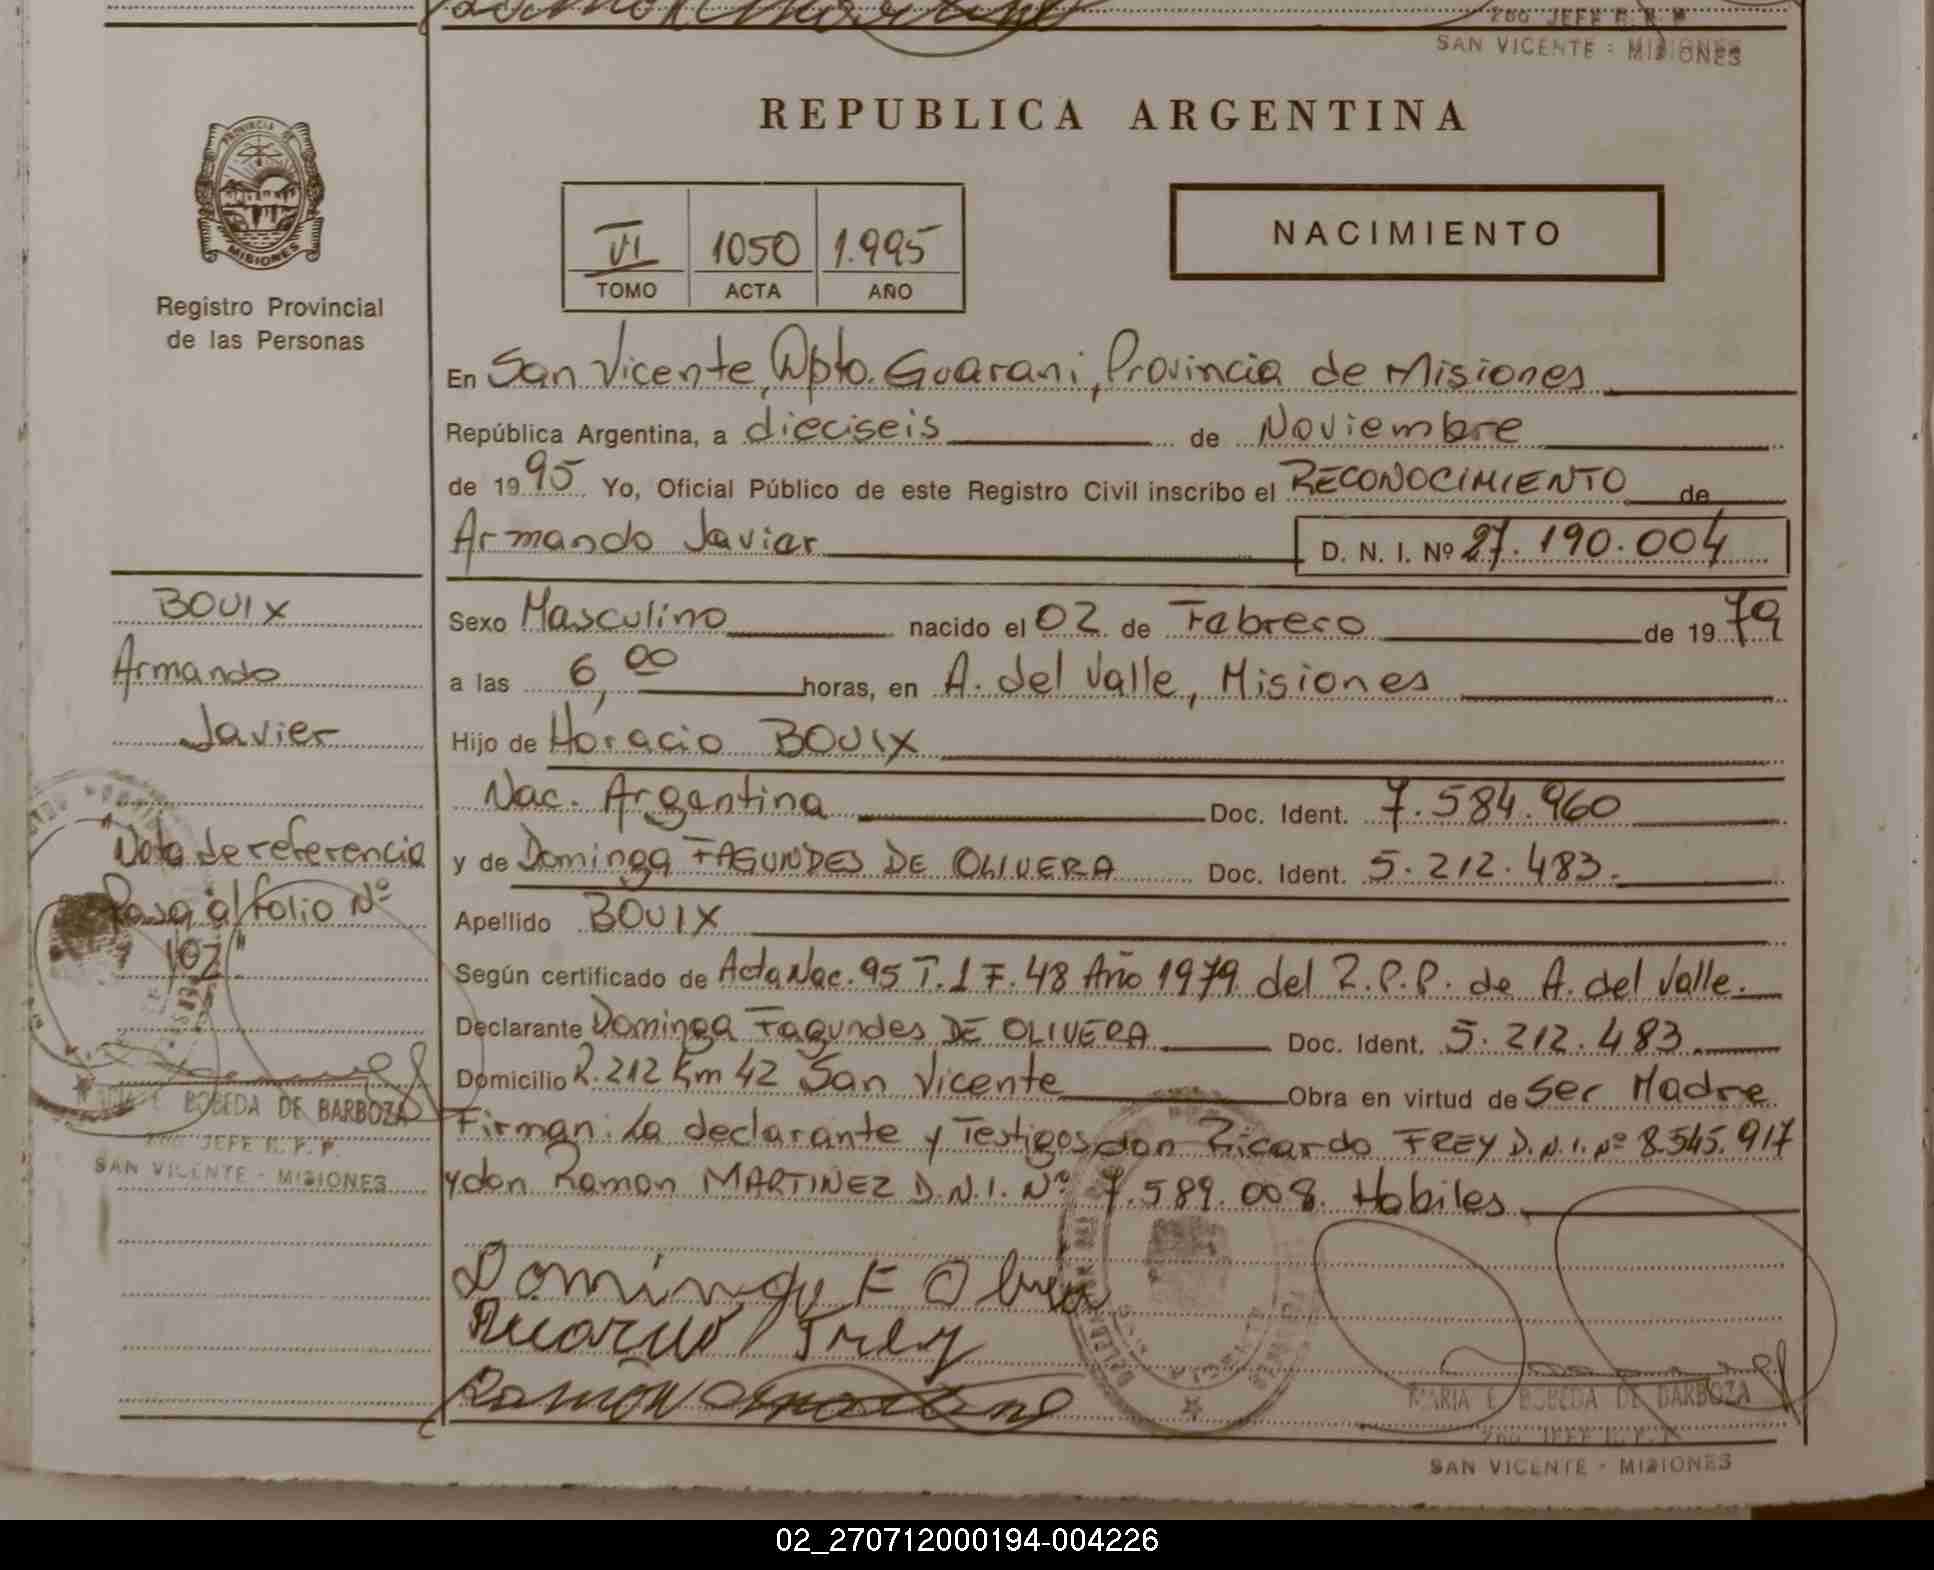 2do JEFE R. P. P.
SAN VICENTE - MISIONES
REPUBLICA ARGENTINA
PROVINCIA DE
MISIONES
Registro Provincial
de las Personas
VI 1050 1.995
TOMO ACTA AÑO
NACIMIENTO
En San Vicente, Dpto. Guarani, Provincia de Misiones
República Argentina, a dieciseis de Noviembre
de 1995 Yo, Oficial Público de este Registro Civil inscribo el RECONOCIMIENTO de
Armando Javier D. N. I. Nº 27.190.004
BOUIX
Armando
Javier
Nota de referencia
Pasa al folio Nº
"102"
BOBEDA DE BARBOZA
2do JEFE R. P. P.
SAN VICENTE - MISIONES
Sexo Masculino nacido el 02 de Febrero de 1979
a las 6,00 horas, en A. del Valle, Misiones
Hijo de Horacio BOUIX
Nac. Argentina Doc. Ident. 7.584.960
y de Dominga FAGUNDES DE OLIVERA Doc. Ident. 5.212.483.
Apellido BOUIX
Según certificado de Acta Nac. 95 T.1 F.48 Año 1979 del R.P.P. de A. del Valle.
Declarante Dominga Fagundes DE OLIVERA Doc. Ident. 5.212.483
Domicilio R.212 Km 42 San Vicente Obra en virtud de Ser Madre
Firman: La declarante y Testigos don Ricardo FREY D.N.I. Nº 8.545.917
y don Ramon MARTINEZ D.N.I. Nº 7.589.008. Habiles
Dominga F Olivera
Ricardo Frey
Ramón
MARIA E. BOBEDA DE BARBOZA
2do JEFE R. P. P.
SAN VICENTE - MISIONES
02_270712000194-004226